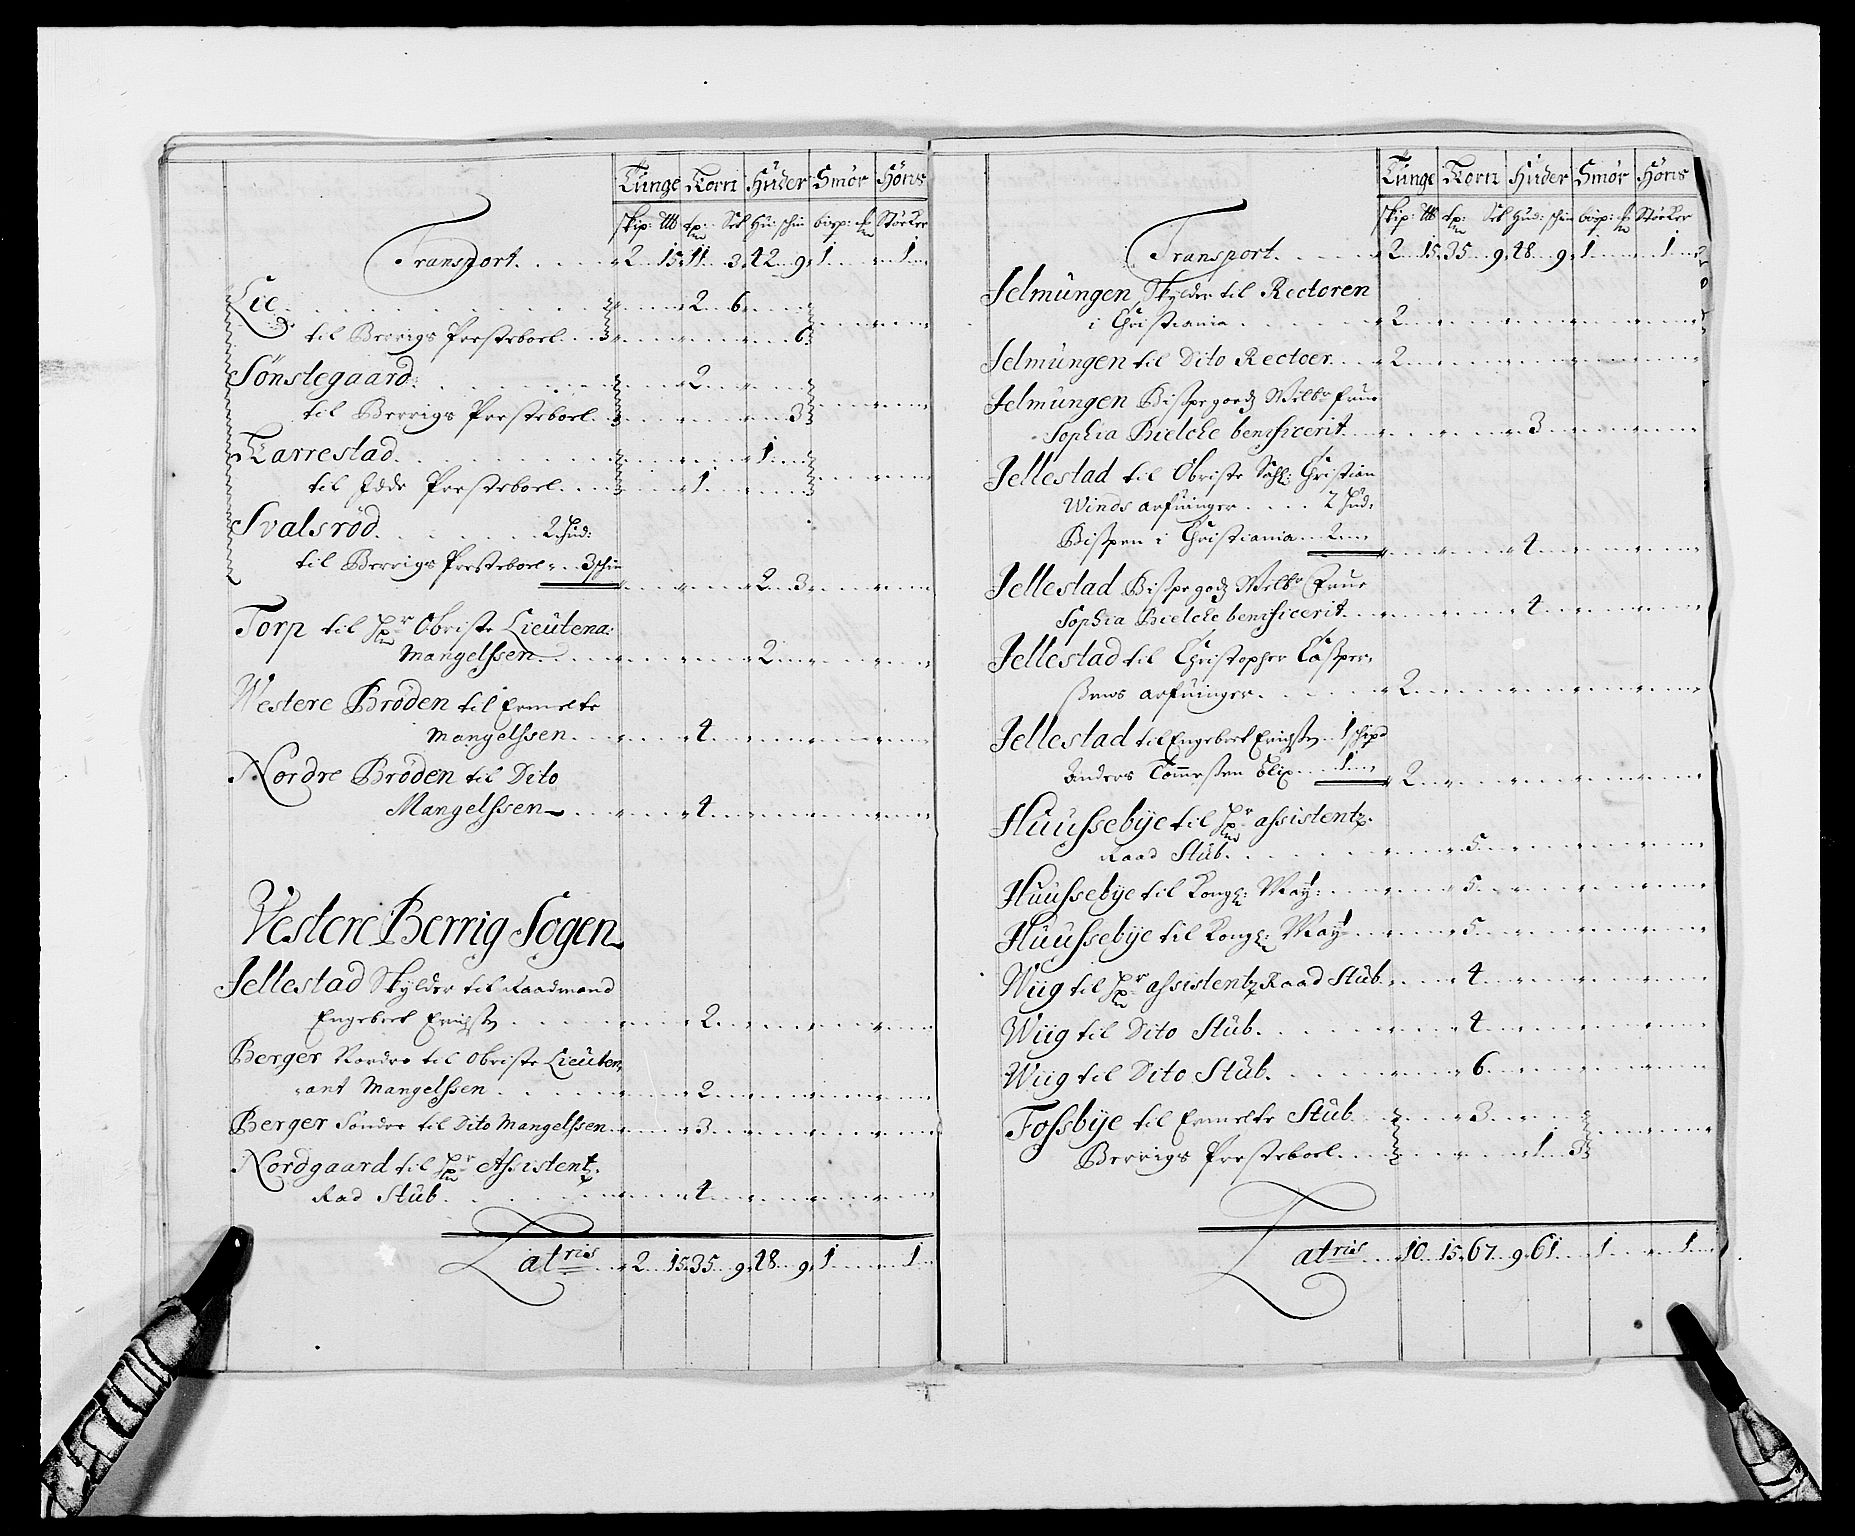 Tunge Korn Huder Smør Høns
skip: ℔ tp: Set Hu: schin bisp: Støcker
Transport 2 15 11 3 42 9 1 1
Lie 2 6
til Berrigs Presteboel 6
Sønstegaard 2
til Berrigs Presteboel 3
Karrestad 1
til Idde Presteboel 1
Svalsrød 2 Hud:
til Berrigs Presteboel 3 schin 2 3
Torp til Hr Obriste Lieutena:
Mangelssen 2
Westere Brøden til Ermelte
Mangelssen 4
Nordre Brøden til Dito
Mangelssen 4
Vestere Berrig Sogen
Jellestad Skylder til Raadmand
Engebret Erichss 2
Berger Nordre til Obriste Lieuten
ant Mangelssen 2
Berger Søndre til Dito Mangelssen 3
Nordgaard til Hr Assistentz
Rad Stub 4
Latris 2 15 35 9 48 9 1 1
Tunge Korn Huder Smør Høns
skip: ℔ tp: Set Hud: schin bisp: Støcker
Transport 2 15 35 9 48 9 1 1
Jelmungen Skylder til Rectoren
i Christiania 2
Jelmungen til Dito Rectoer 2
Jelmungen Bispegodz Welbr frue
Sophia Bielche benificerit 3
Jellestad til Obriste Sahl: Christian
Winds arfuinger 2 Hud:
Bispen i Christiania 2 4
Jellestad Bispegodz Welbr Frue
Sophia Bielche benificerit 4
Jellestad til Christopher Casper
sens arfuinger 2
Jellestad til Engebret Erichss 1 schipd
Anders Tommesen 1 2
Huussebye til Hr assistentz
Raad Stub 5
Huussebye til Kongl: May: 5
Huussebye til Kongl: Mayt 5
Wiig til Hr assistentz Raad Stub 4
Wiig til Dito Stub 4
Wiig til Dito Stub 6
Fossbye til Ermelte Stub 3
Berrigs Presteboel 1 3
Latris 10 15 67 9 61 1 1